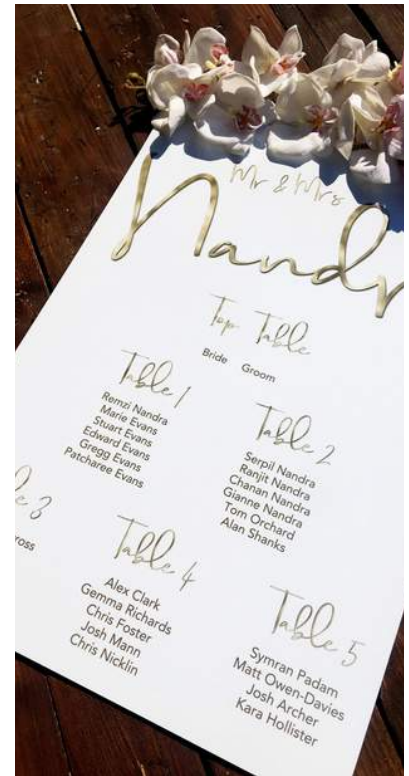 Mr & Mrs
Nandr
Top Table
Bride Groom
Table 1
Remzi Nandra
Marie Evans
Stuart Evans
Edward Evans
Gregg Evans
Patcharee Evans
Table 2
Serpil Nandra
Ranjit Nandra
Chanan Nandra
Gianne Nandra
Tom Orchard
Alan Shanks
le 3
ross
Table 4
Alex Clark
Gemma Richards
Chris Foster
Josh Mann
Chris Nicklin
Table 5
Symran Padam
Matt Owen-Davies
Josh Archer
Kara Hollister